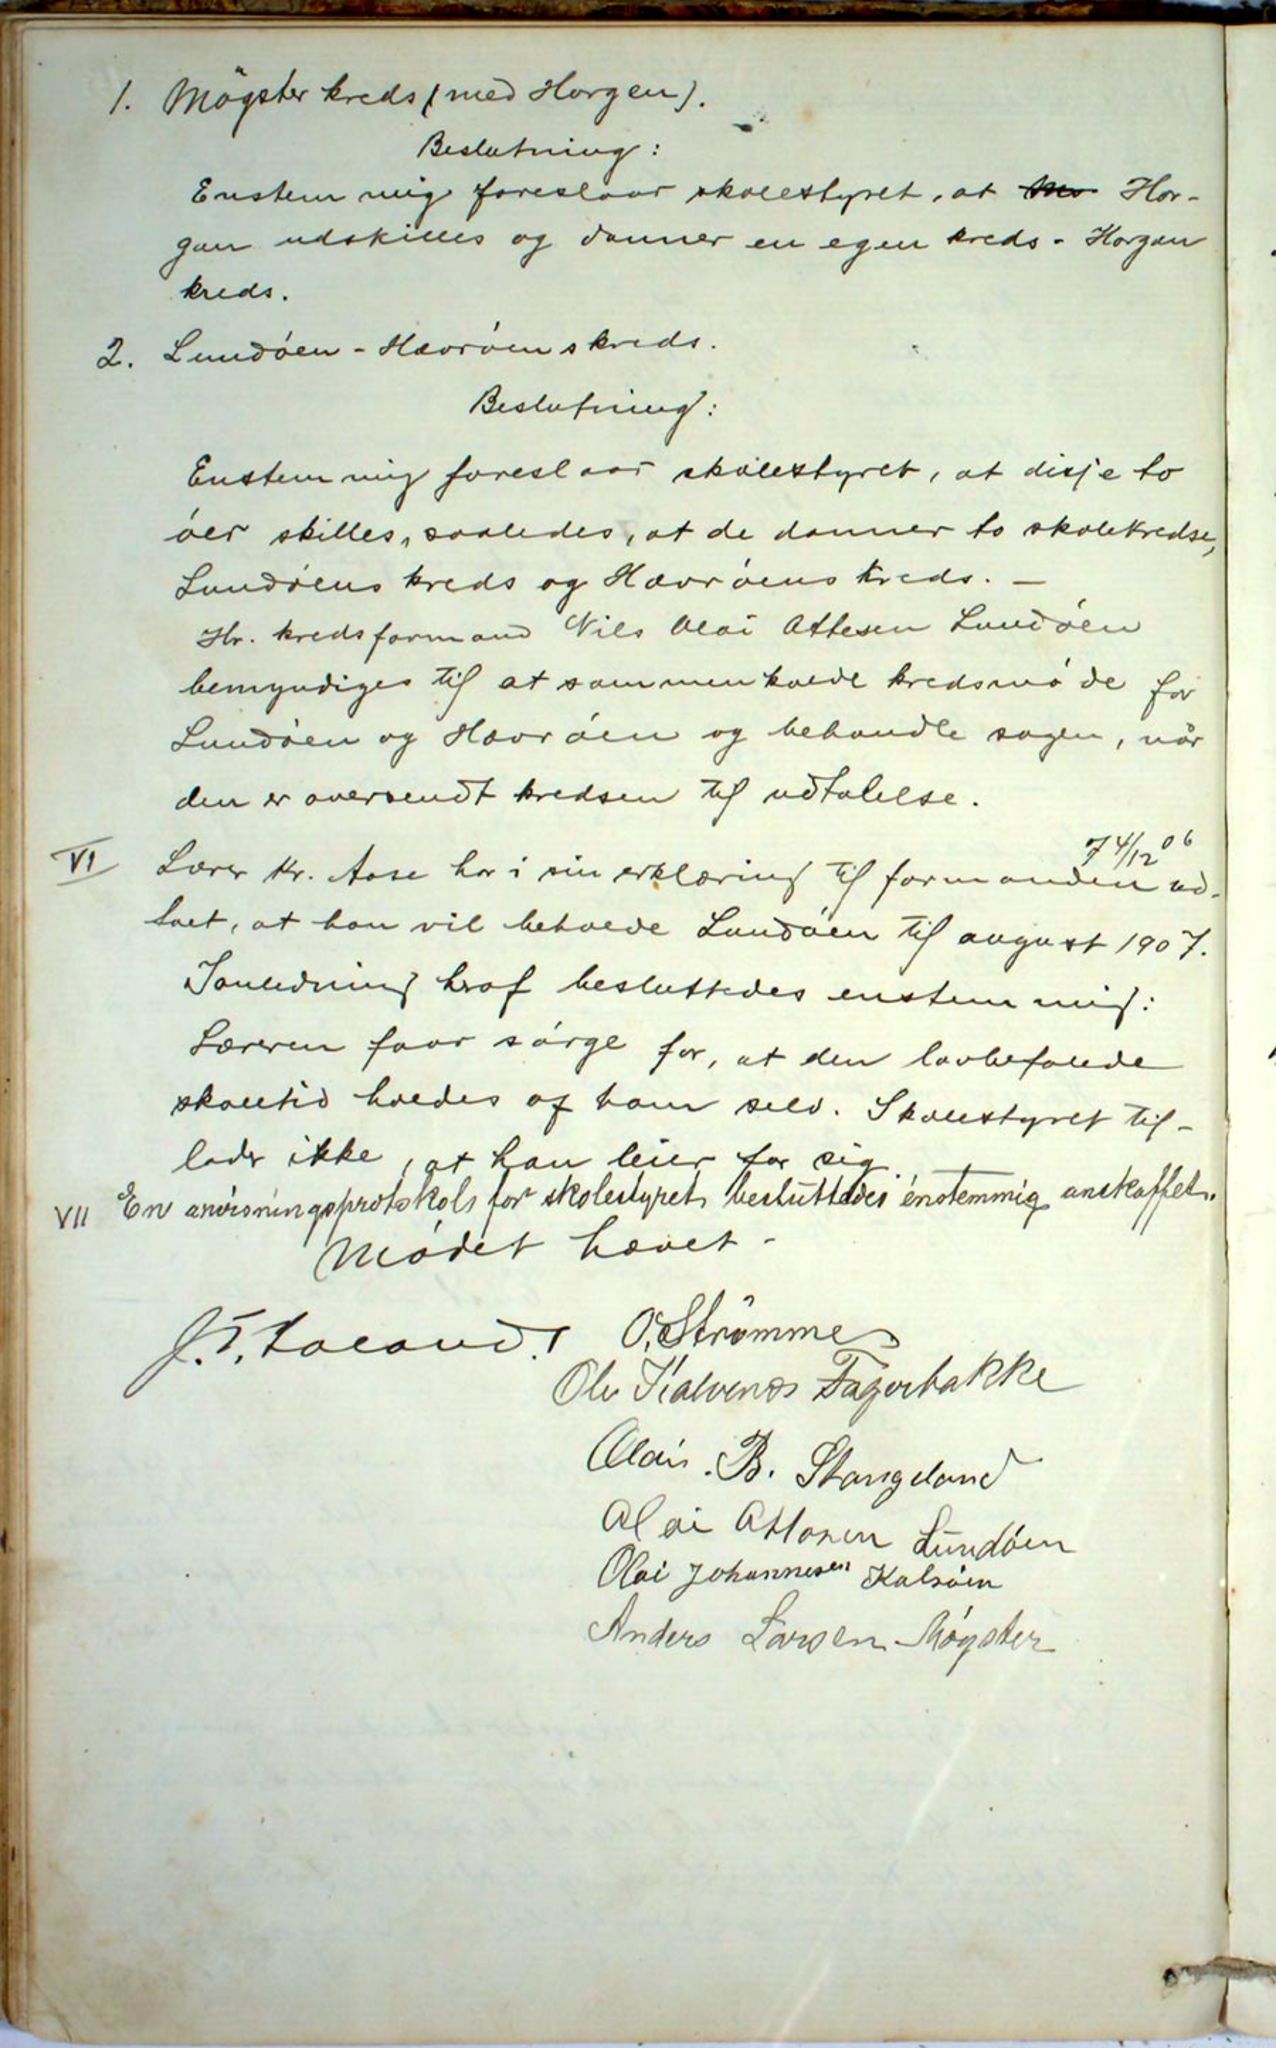 1. Mögster kreds (med Horgen).
Beslutning:
Enstemmig foreslaar skolestyret, at Hor-
gan udskilles og danner en egen kreds - Horgan
kreds.
2. Lundóen - Hævróens kreds.
Beslutning:
Enstemmig foreslaar skolestyret, at disse to
óer skilles, saaledes, at de danner to skolekredse,
Lundóens kreds og Hævróens kreds. —
Hr. kredsformand Nils Olai Attesen Lundóen
bemyndiges til at sammenkalde kredsmóde for
Lundóen og Hævróen og behandle sagen, når
den er oversendt kredsen til udtalelse.
VI Lærer Kr. Aase har i sin erklæring til formanden 4/12 06 ud-
talt, at han vil beholde Lundóen til august 1907.
I anledning heraf besluttedes enstemmig:
Læreren faar sórge for, at den lovbefalede
skoletid holdes af ham selv. Skolestyret til-
lader ikke, at han leier for sig.
VII En anvisningsprotokol for skolestyret besluttedes enstemmig anskaffet.
Módet hævet -
O. Strömme
Olai B. Stangeland
Olai Attesen Lundóen
Olai Johannesen Kalsóen
Anders Larsen Mógster